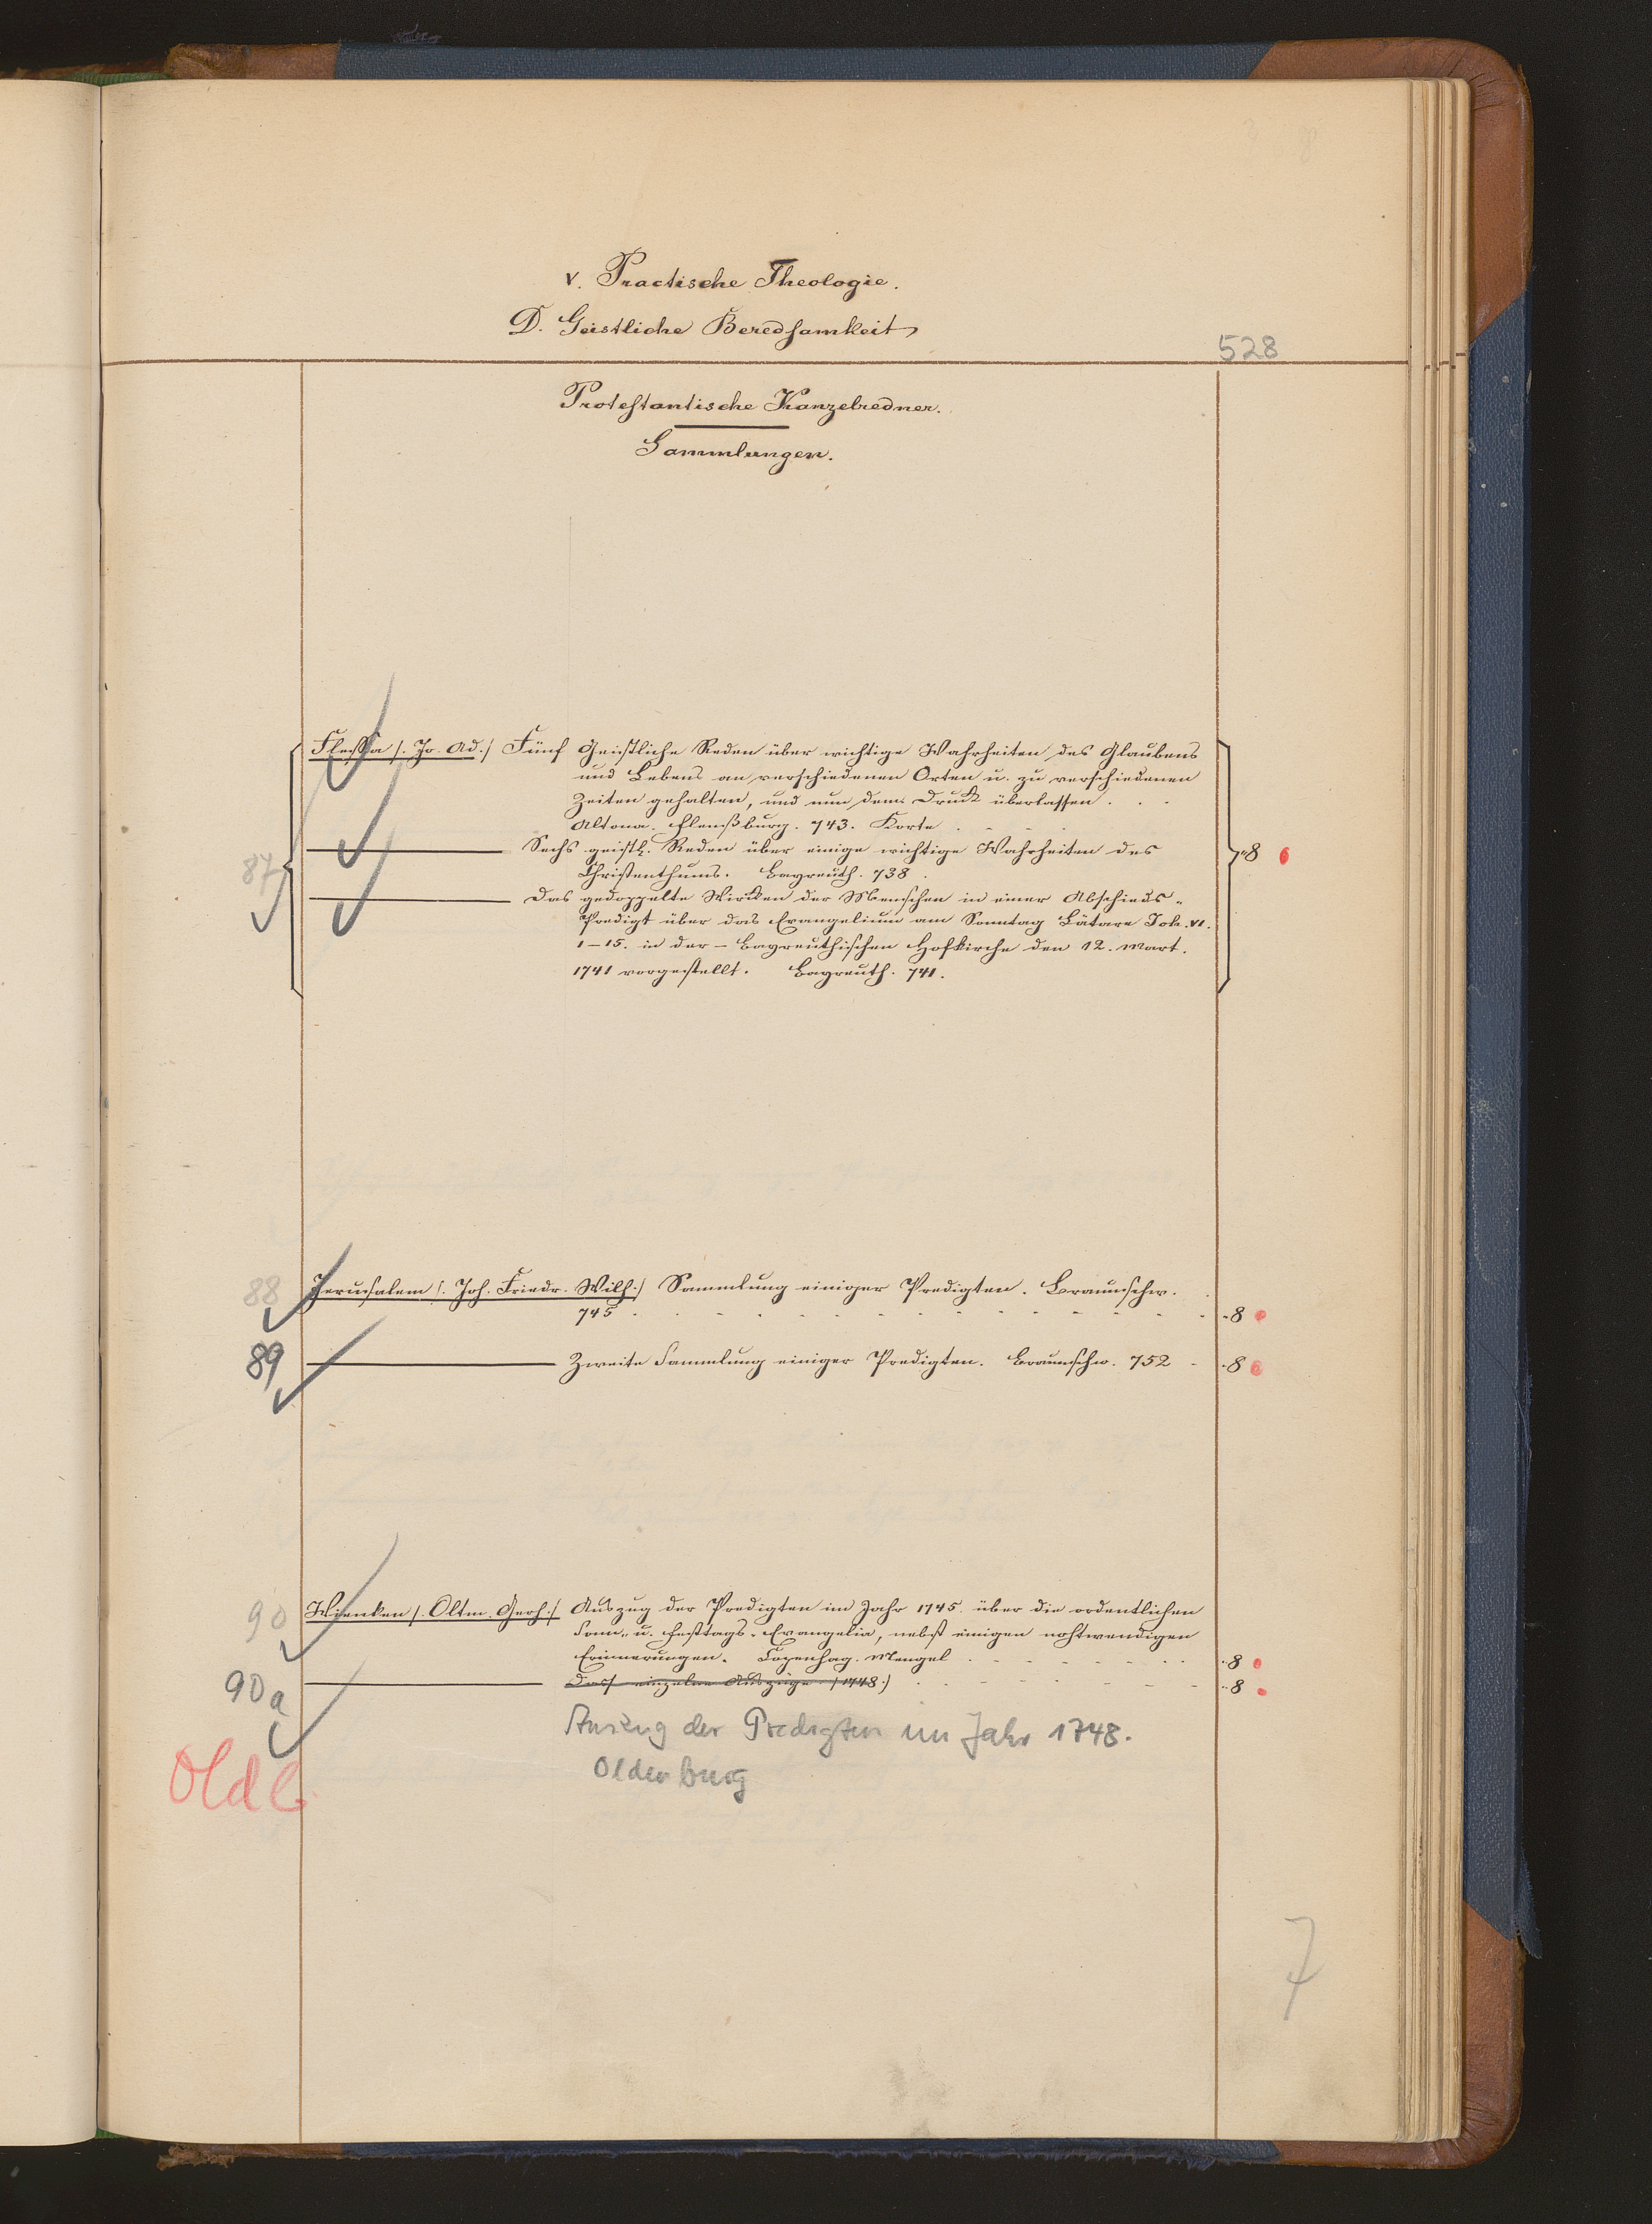 V. Practische Theologie.
D. Geistliche Beredsamkeit
528
Protestantische Kanzelredner.
Sammlungen.
Flessa /. Jo. Ad./ Fünf Geistliche Reden über wichtige Wahrheiten des Glaubens
und Lebens an verschiedenen Orten u. zu verschiedenen
Zeiten gehalten, und nun dem Druck überlassen . . .
Altona. Flensburg. 743. Korte . . .
87 Sechs geistl. Reden über einige wichtige Wahrheiten des "8
Christenthums. Bayreuth. 738.
Das gedoppelte Wirken der Menschen in einer Abschieds-
Predigt über das Evangelium am Sonntag Lätare Joh. VI.
1-15. in der - Bayreuthischen Hofkirche den 12. Mart.
1741 vorgestellt. Bayreuth. 741.
88 Jerusalem /. Joh. Friedr. Wilh:/ Sammlung einiger Predigten. Braunschw.
745 . . . . . . . . . . . . . . "8
89 Zweite Sammlung einiger Predigten. Braunschw. 752 - "8
90 Wienken /. Oltm. Gerh:/ Auszug der Predigten im Jahr 1745. über die ordentlichen
Sonn- u. Festtags-Evangelia, nebst einigen nohtwendigen
Erinnerungen. Copenhag. Mengel . . . . . . . "8
90a einzelne Auszüge /1748.) . . . . . . . "8
Auszug der Predigten im Jahr 1748.
Oldenburg
Oldb
7